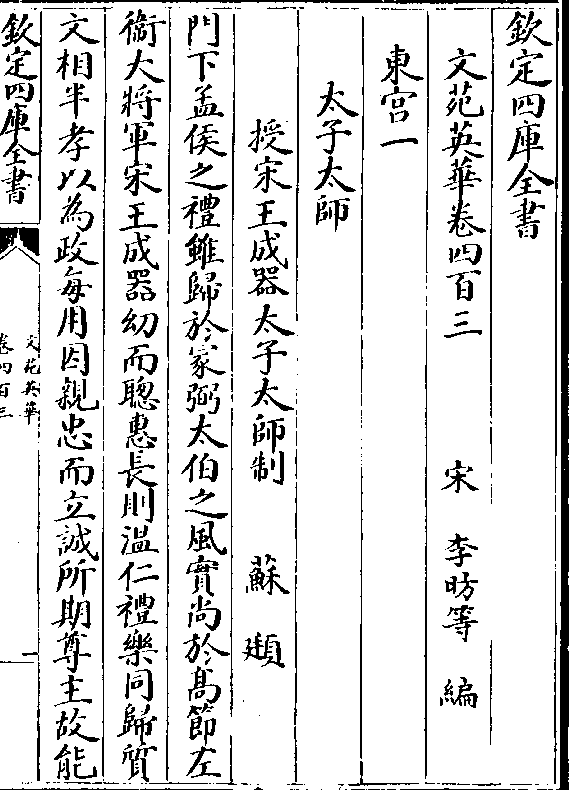 欽定四庫全書
文苑英華卷四百三
宋 李昉等 編
東宮一
太子太師
授宋王成器太子太師制 蘇頲
門下孟侯之禮雖歸於冢弼太伯之風實尚於髙節左
衞大將軍宋王成器幼而聰惠長則温仁禮樂同歸質
文相半孝以為政每用因親忠而立誠所期尊主故能
欽定四庫全書
文苑英華
卷四百三
一